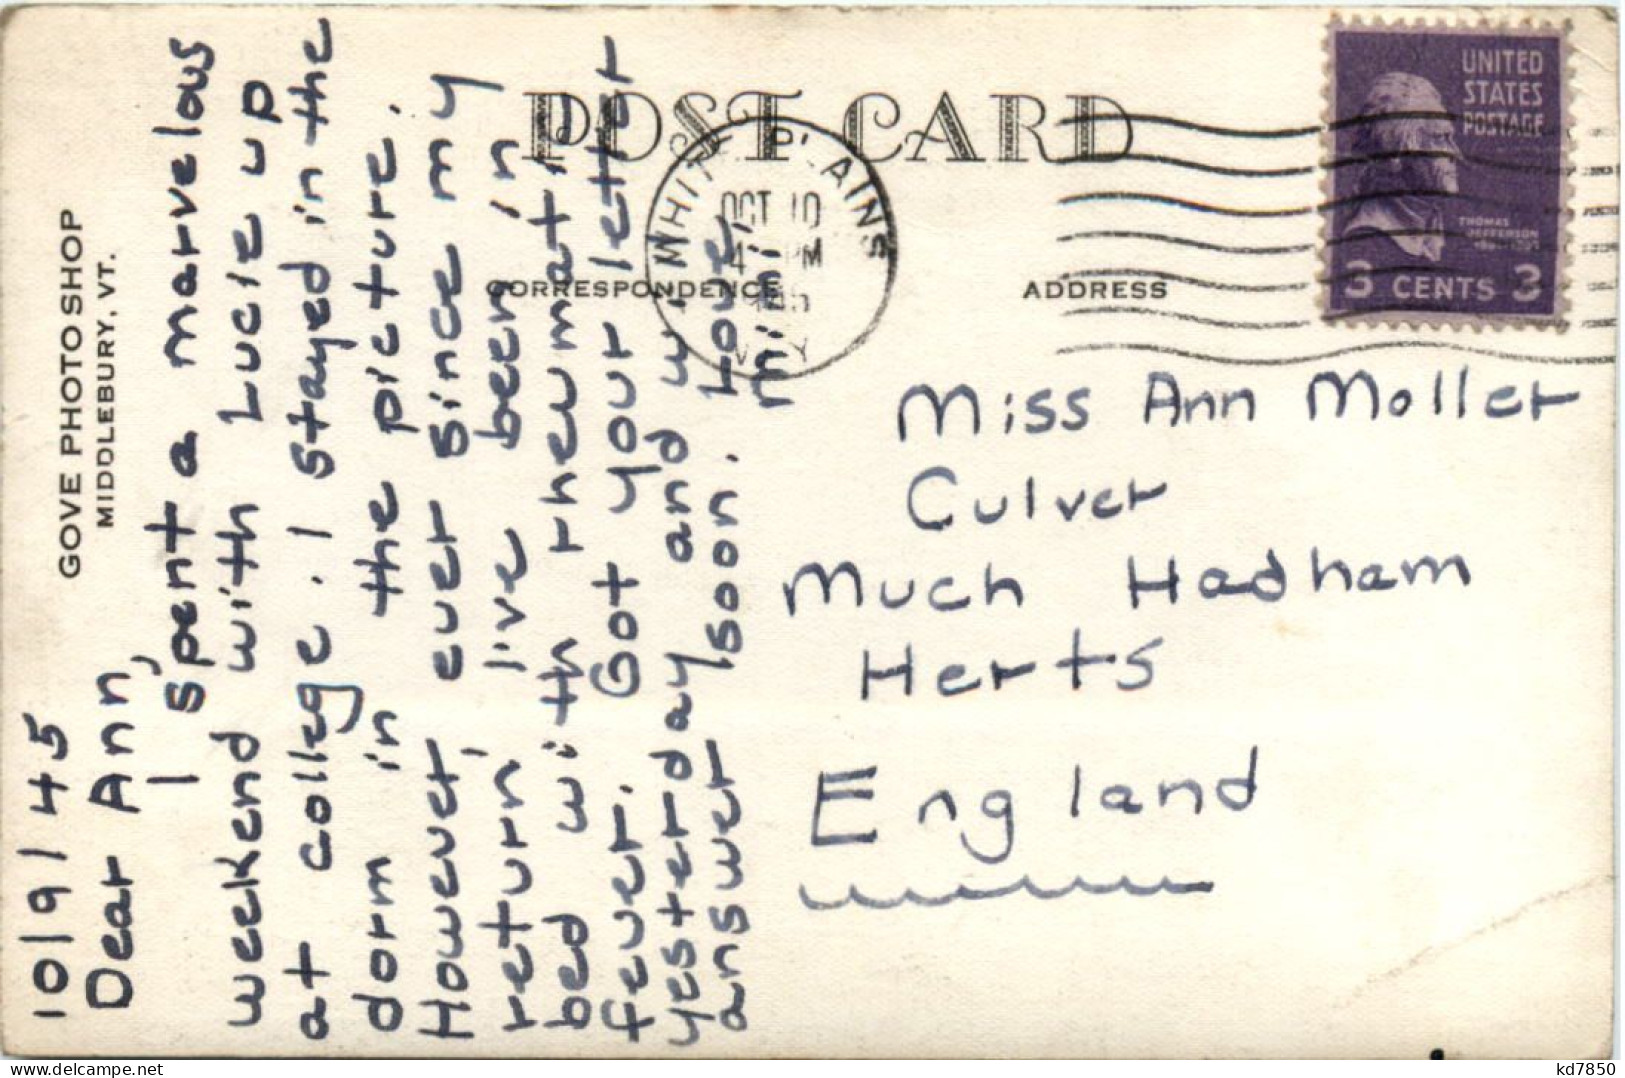 GOVE PHOTO SHOP
MIDDLEBURY, VT.
10/9/45
Dear Ann,
I spent a marvelous
weekend with Lucie up
at college. I stayed in the
dorm in the picture.
However, ever since my
return, I've been in
bed with rhewmatic
fever. Got your letter
yesterday and will
answer soon. Love,
Mimi
POST CARD
CORRESPONDENCE
ADDRESS
WHITE PLAINS
OCT 10
4 PM
N.Y.
UNITED
STATES
POSTAGE
THOMAS
JEFFERSON
3 CENTS 3
Miss Ann Moller
Culver
Much Hadham
Herts
England
delcampe.net
kd7850